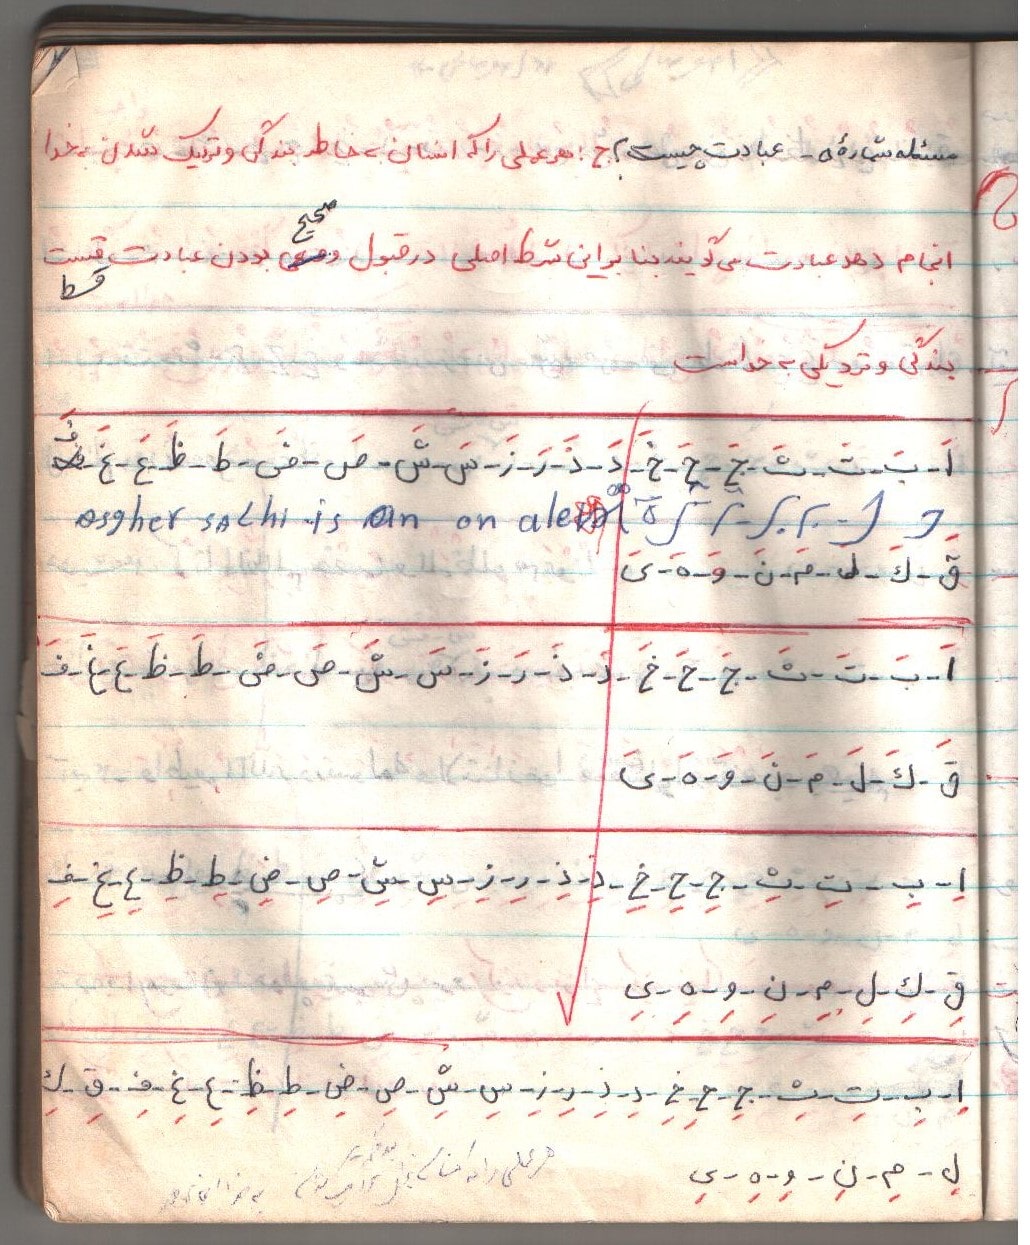 مسئله شمارهٔ ۵ - عبادت چیست؟ ج: هر عملی را که انسان به خاطر بندگی و نزدیک شدن به خدا
صحیح
انجام دهد عبادت می‌گویند بنا براین شرط اصلی در قبول و بودن عبادت قیست
قسط
بندگی و نزدیکی به خداست
اَ - بَ - تَ - ثَ - جَ - حَ - خَ - دَ - ذَ - رَ - زَ - سَ - شَ - صَ - ضَ - طَ - ظَ - عَ - غَ - فَ
asgher salhi is an on
قَ - كَ - لَ - مَ - نَ - وَ - هَ - یَ
اَ - بَ - تَ - ثَ - جَ - حَ - خَ - دَ - ذَ - رَ - زَ - سَ - شَ - صَ - ضَ - طَ - ظَ - عَ - غَ - فَ
قَ - كَ - لَ - مَ - نَ - وَ - هَ - یَ
اِ - بِ - تِ - ثِ - جِ - حِ - خِ - دِ - ذِ - رِ - زِ - سِ - شِ - صِ - ضِ - طِ - ظِ - عِ - غِ - فِ
قِ - كِ - لِ - مِ - نِ - وِ - هِ - یِ
اِ - بِ - تِ - ثِ - جِ - حِ - خِ - دِ - ذِ - رِ - زِ - سِ - شِ - صِ - ضِ - طِ - ظِ - عِ - غِ - فِ - قِ - كِ
لِ - مِ - نِ - وِ - هِ - یِ
هر عملی را که انسان